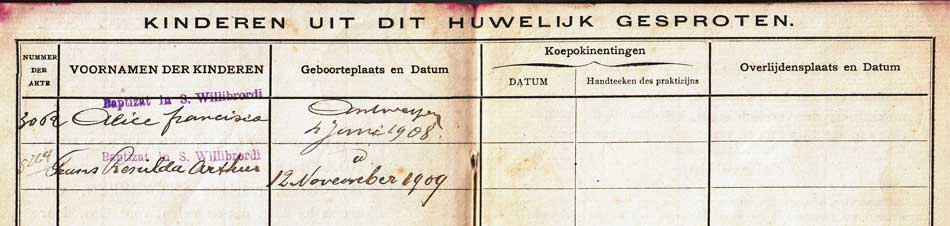 KINDEREN UIT DIT HUWELIJK GESPROTEN.
NUMMER DER AKTE
VOORNAMEN DER KINDEREN
Geboorteplaats en Datum
Koepokinentingen
DATUM
Handteeken des praktizijns
Overlijdensplaats en Datum
Baptizat in S. Willibrordi
3062 Alice francisca Antwerpen
juni 1908.
Baptizat in S. Willibrordi
Frans Resulda Arthur id
12 November 1909